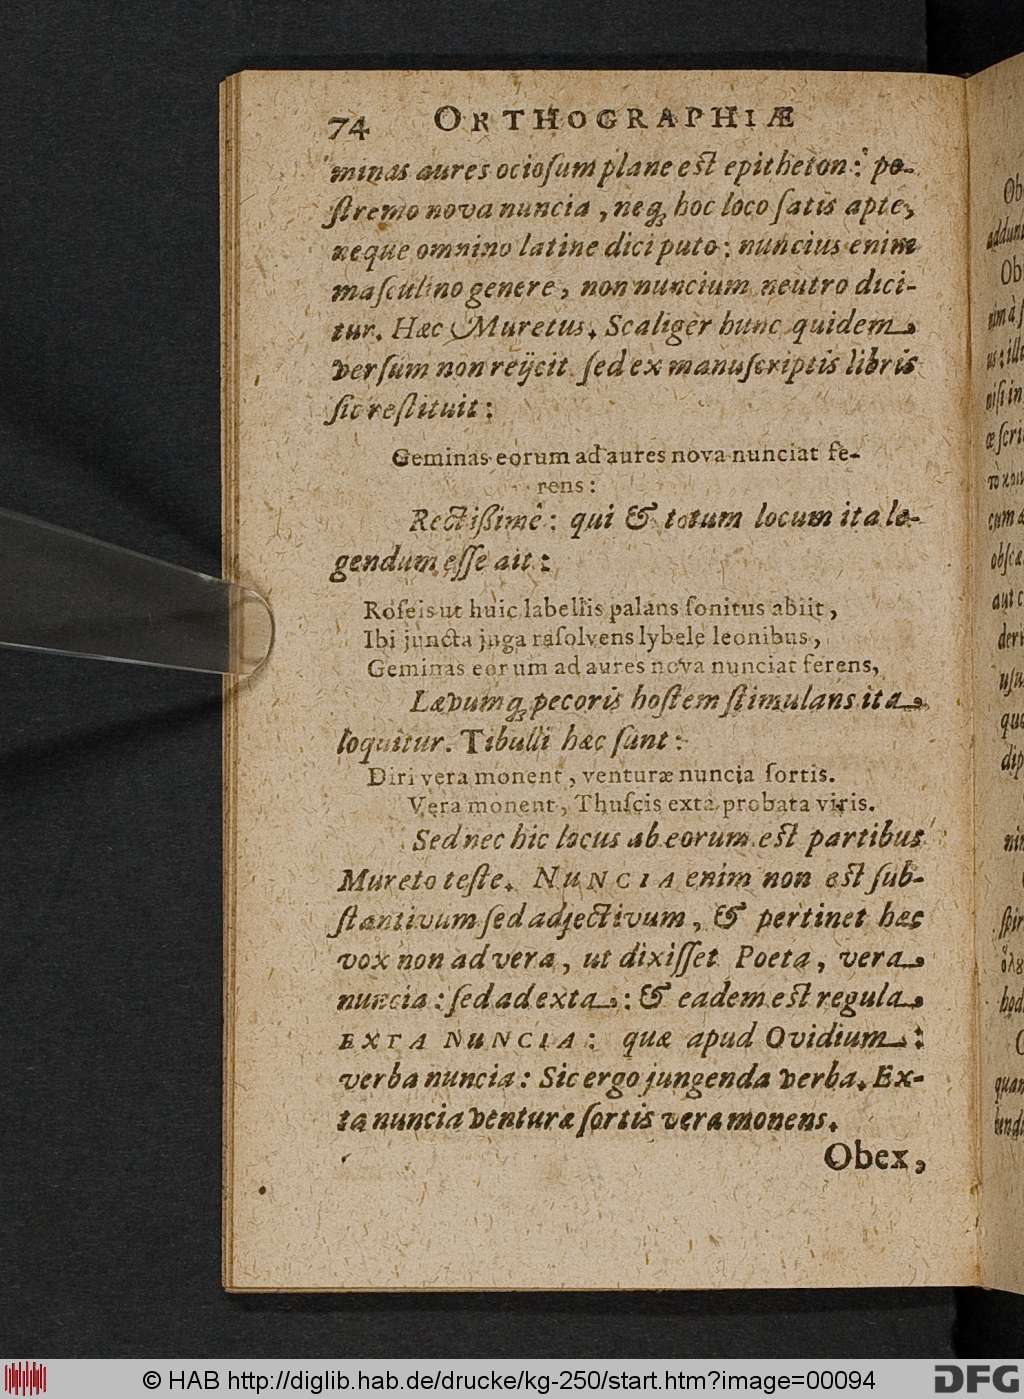 74 ORTHOGRAPHIÆ
minas aures ocioſum plane eſt epitheton: po-
ſtremo nova nuncia, neq; hoc loco ſatis apte,
neque omnino latine dici puto: nuncius enim
maſculino genere, non nuncium neutro dici-
tur. Hæc Muretus. Scaliger hunc quidem
verſum non reijcit ſed ex manuſcriptis libris
ſic reſtituit:
Geminas eorum ad aures nova nunciat fe-
rens:
Rectißimè: qui & totum locum ita le-
gendum eſſe ait:
Roſeis ut huic labellis palans ſonitus abiit,
Ibi juncta juga raſolvens lybele leonibus,
Geminas eorum ad aures nova nunciat ferens,
Lævumq; pecoris hoſtem ſtimulans ita
loquitur. Tibulli hæc ſunt:
Diri vera monent, venturæ nuncia ſortis.
Vera monent, Thuſcis exta probata viris.
Sed nec hic locus ab eorum eſt partibus
Mureto teſte. NUNCIA enim non eſt ſub-
ſtantivum ſed adjectivum, & pertinet hæc
vox non ad vera, ut dixiſſet Poeta, vera
nuncia: ſed ad exta: & eadem eſt regula
EXTA NUNCIA: quæ apud Ovidium:
verba nuncia: Sic ergo jungenda verba. Ex-
ta nuncia venturæ ſortis vera monens.
Obex,
© HAB http://diglib.hab.de/drucke/kg-250/start.htm?image=00094
DFG